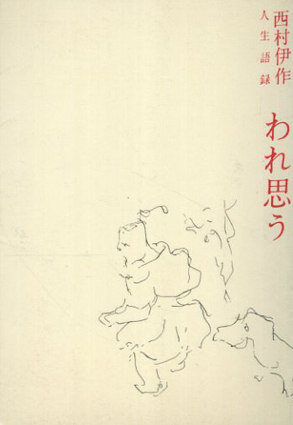 西村伊作
人生語録
われ思う